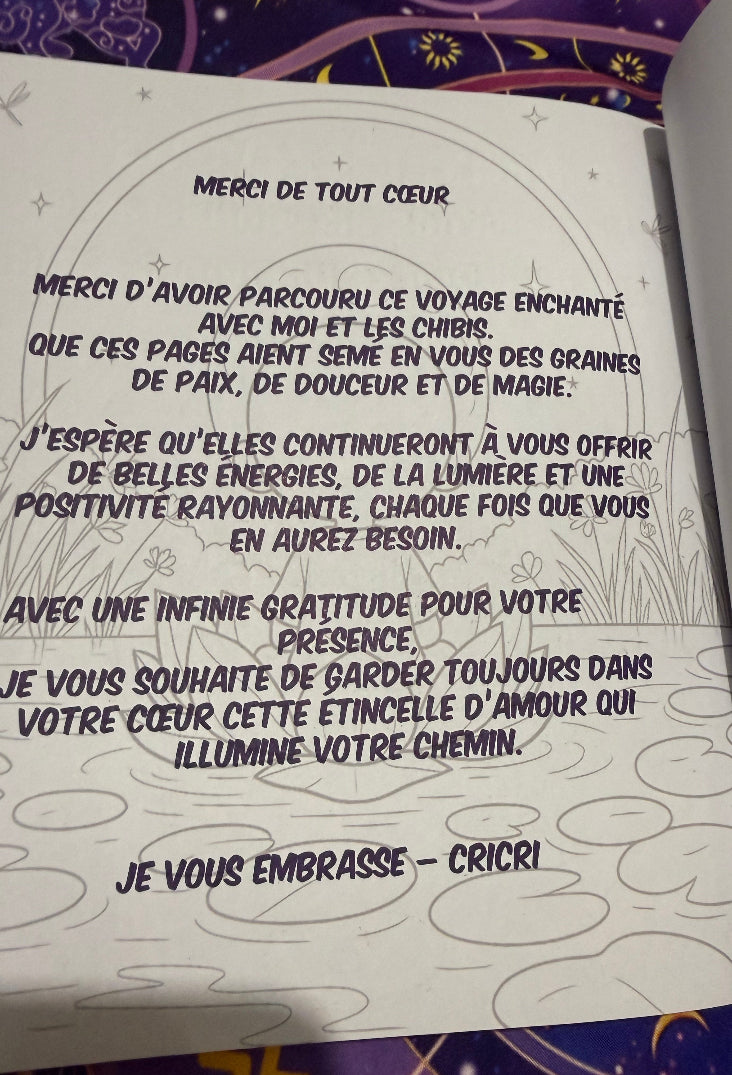 MERCI DE TOUT CŒUR
MERCI D'AVOIR PARCOURU CE VOYAGE ENCHANTÉ
AVEC MOI ET LES CHIBIS.
QUE CES PAGES AIENT SEMÉ EN VOUS DES GRAINES
DE PAIX, DE DOUCEUR ET DE MAGIE.
J'ESPÈRE QU'ELLES CONTINUERONT À VOUS OFFRIR
DE BELLES ÉNERGIES, DE LA LUMIÈRE ET UNE
POSITIVITÉ RAYONNANTE, CHAQUE FOIS QUE VOUS
EN AUREZ BESOIN.
AVEC UNE INFINIE GRATITUDE POUR VOTRE
PRÉSENCE,
JE VOUS SOUHAITE DE GARDER TOUJOURS DANS
VOTRE CŒUR CETTE ÉTINCELLE D'AMOUR QUI
ILLUMINE VOTRE CHEMIN.
JE VOUS EMBRASSE – CRICRI